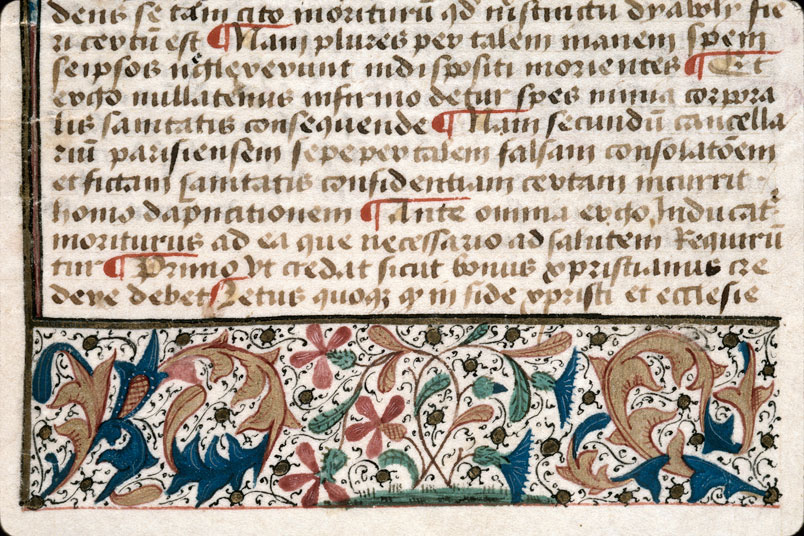 dens se tam cito moriturū qd instinctu dyaboly fie
ri certū est ¶ Nam plures per talem inanem spem
seipsos neglexerunt indispositi morientes ¶ Et
ergo nullatenus infirmo detur spes nimia corpora
lis sanitatis consequende ¶ Nam secundū cancella
riū parisiensem sepe per talem falsam consolatōem
et fictam sanitatis confidentiam certam incurrit
homo dāpnationem ¶ Ante omnia ergo Inducat
moriturus ad ea que necessario ad salutem Requirū
tur ¶ Primo Vt credat sicut bonus xpristianus cre
dere debet Letus quoqꝫ ꝙ in fide xpristi et ecclesie